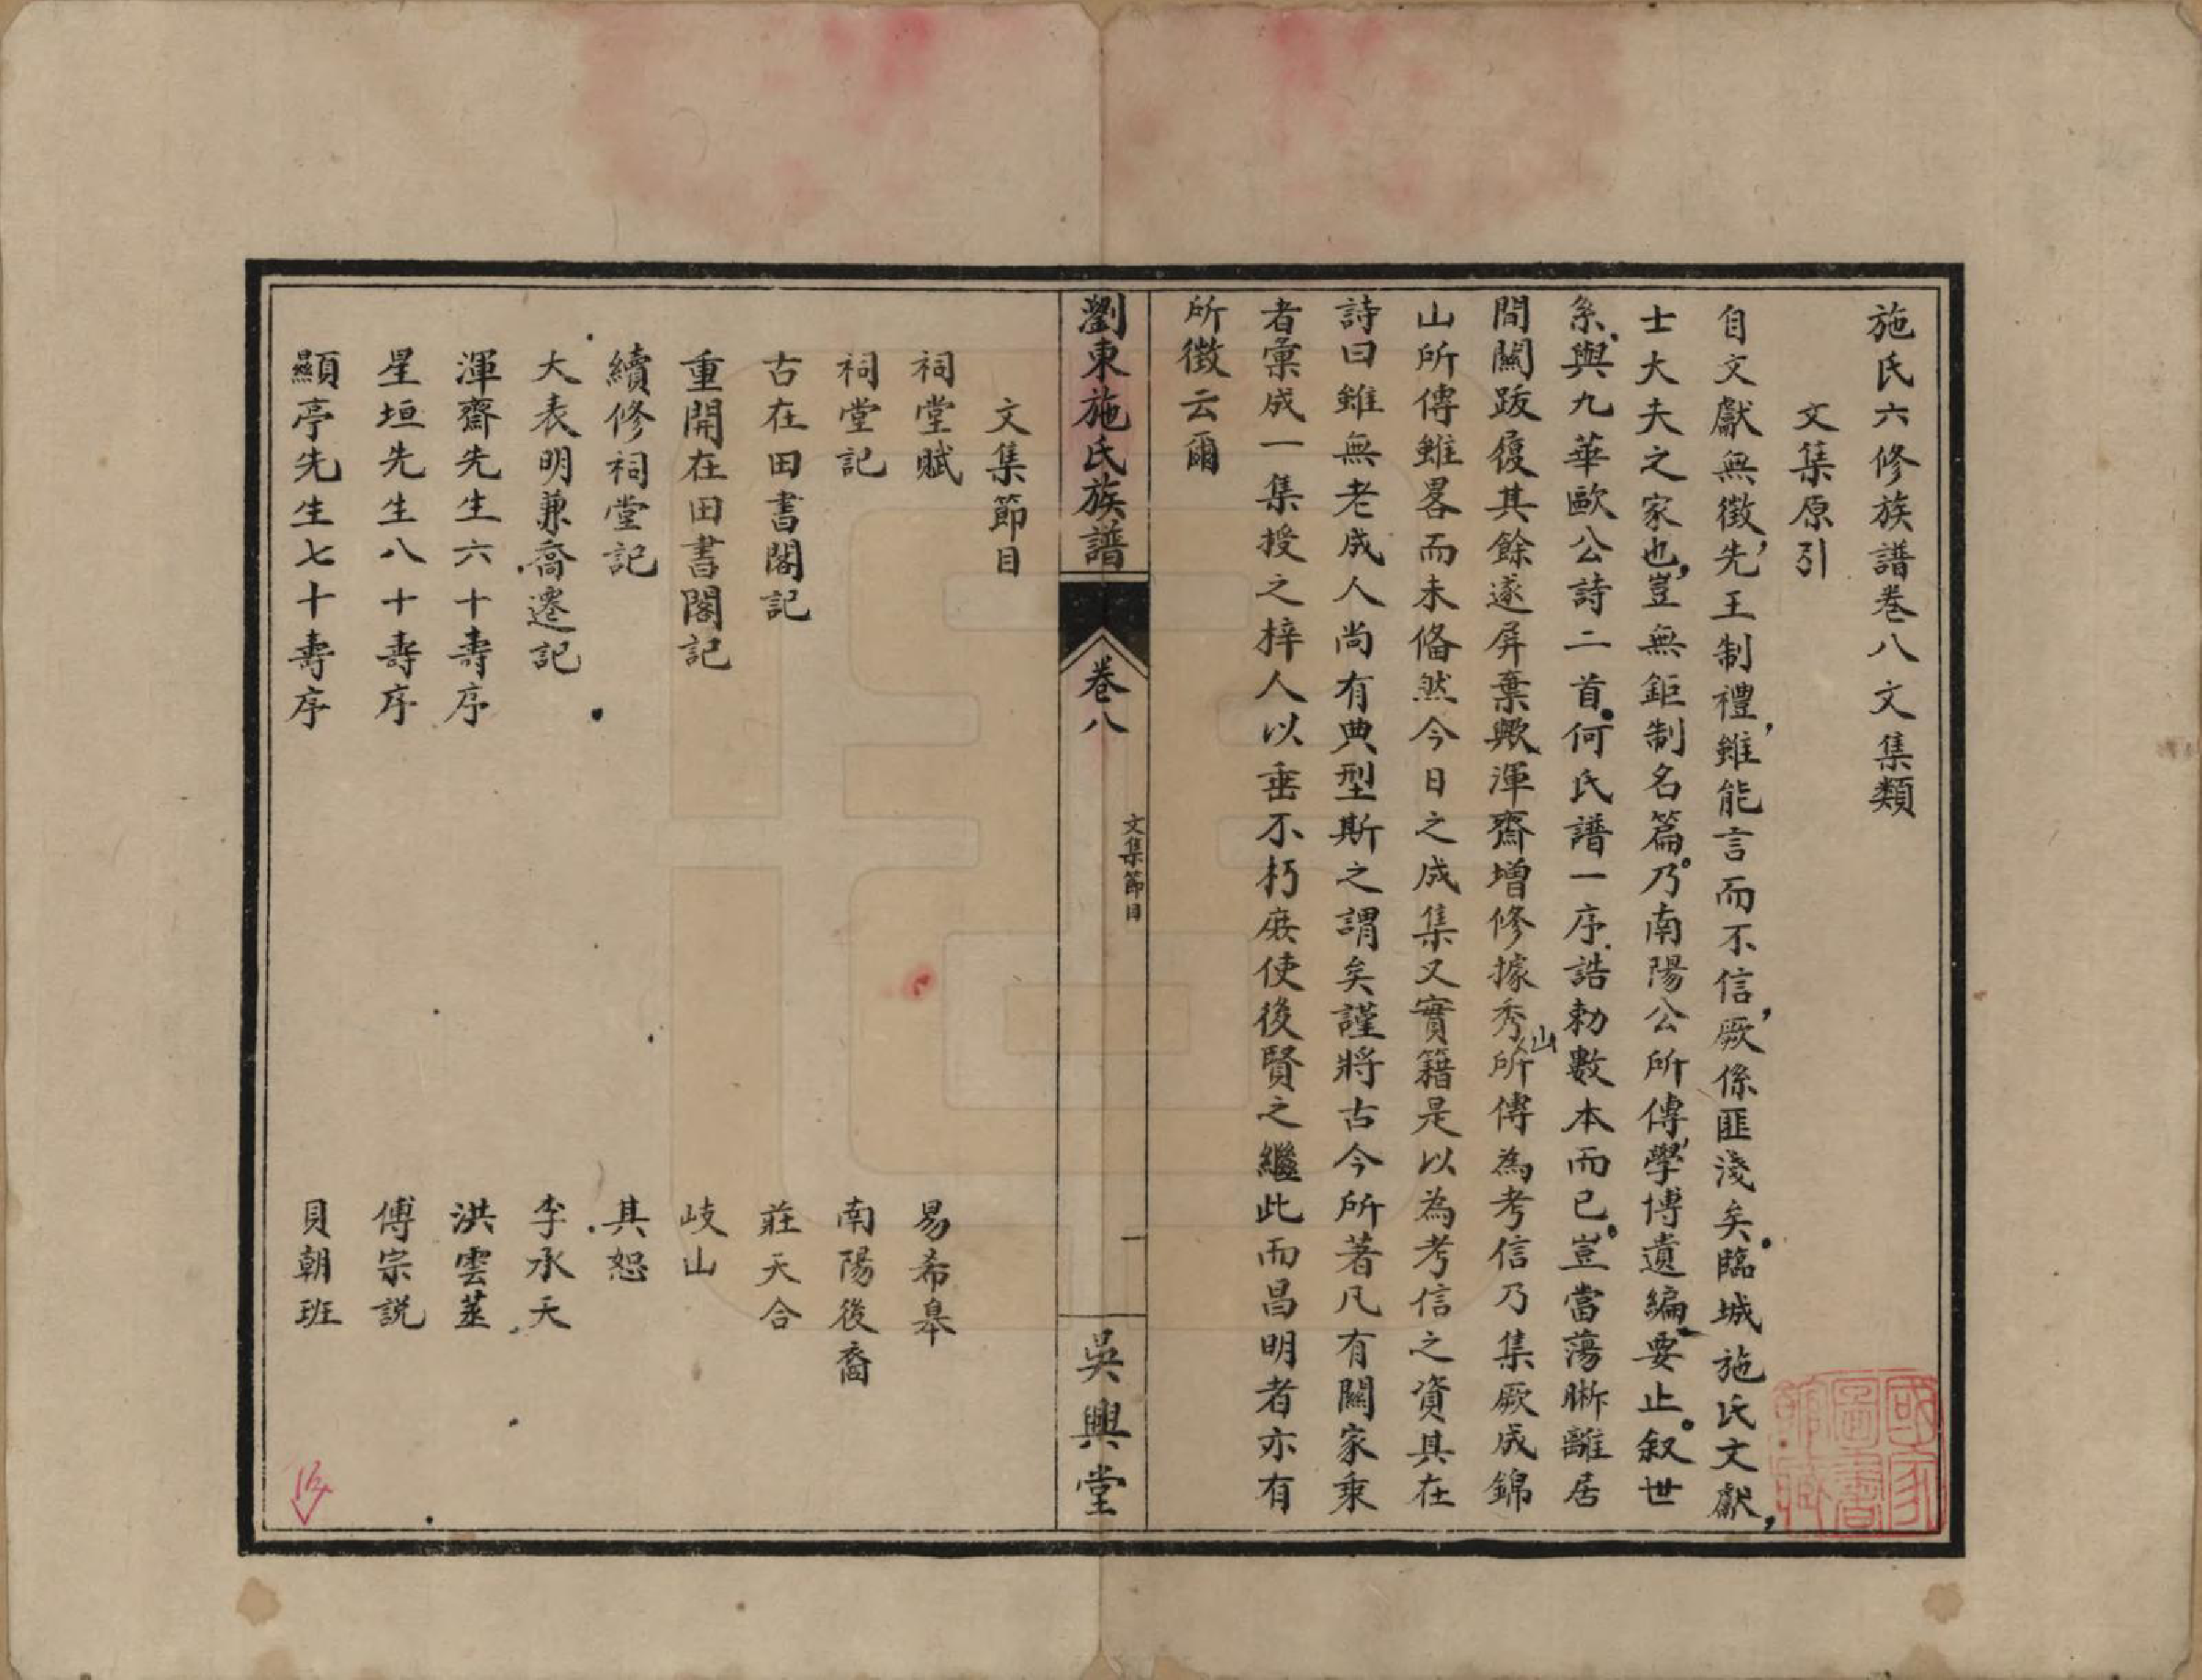 施氏六修族譜卷八文集類
文集原引
自文獻無徵，先王制禮，雖能言而不信，厥係匪淺矣。臨城施氏文獻，
士大夫之家也，豈無鉅制名篇。乃南陽公所傳，學博遺編，要止。叙世
系、與九華歐公詩二首。何氏譜一序、誥勅數本而已。豈當蕩晰離居
間關跋履其餘遂屏棄歟渾齋增修據秀山所傳為考信乃集厥成錦
山所傳雖畧而未備然今日之成集又實籍是以為考信之資其在
詩曰雖無老成人尚有典型斯之謂矣謹將古今所著凡有關家乘
者彙成一集授之梓人以垂不朽庶使後賢之繼此而昌明者亦有
所徵云爾
劉東施氏族譜
卷八
文集節目
一
吳興堂
文集節目
祠堂賦 易希皋
祠堂記 南陽後裔
古在田書閣記 莊天合
重開在田書閣記 岐山
續修祠堂記 其恕
大表明兼喬遷記 李承天
渾齋先生六十壽序 洪雲蒸
星垣先生八十壽序 傅宗説
顯亭先生七十壽序 貝朝班
國家圖書館藏